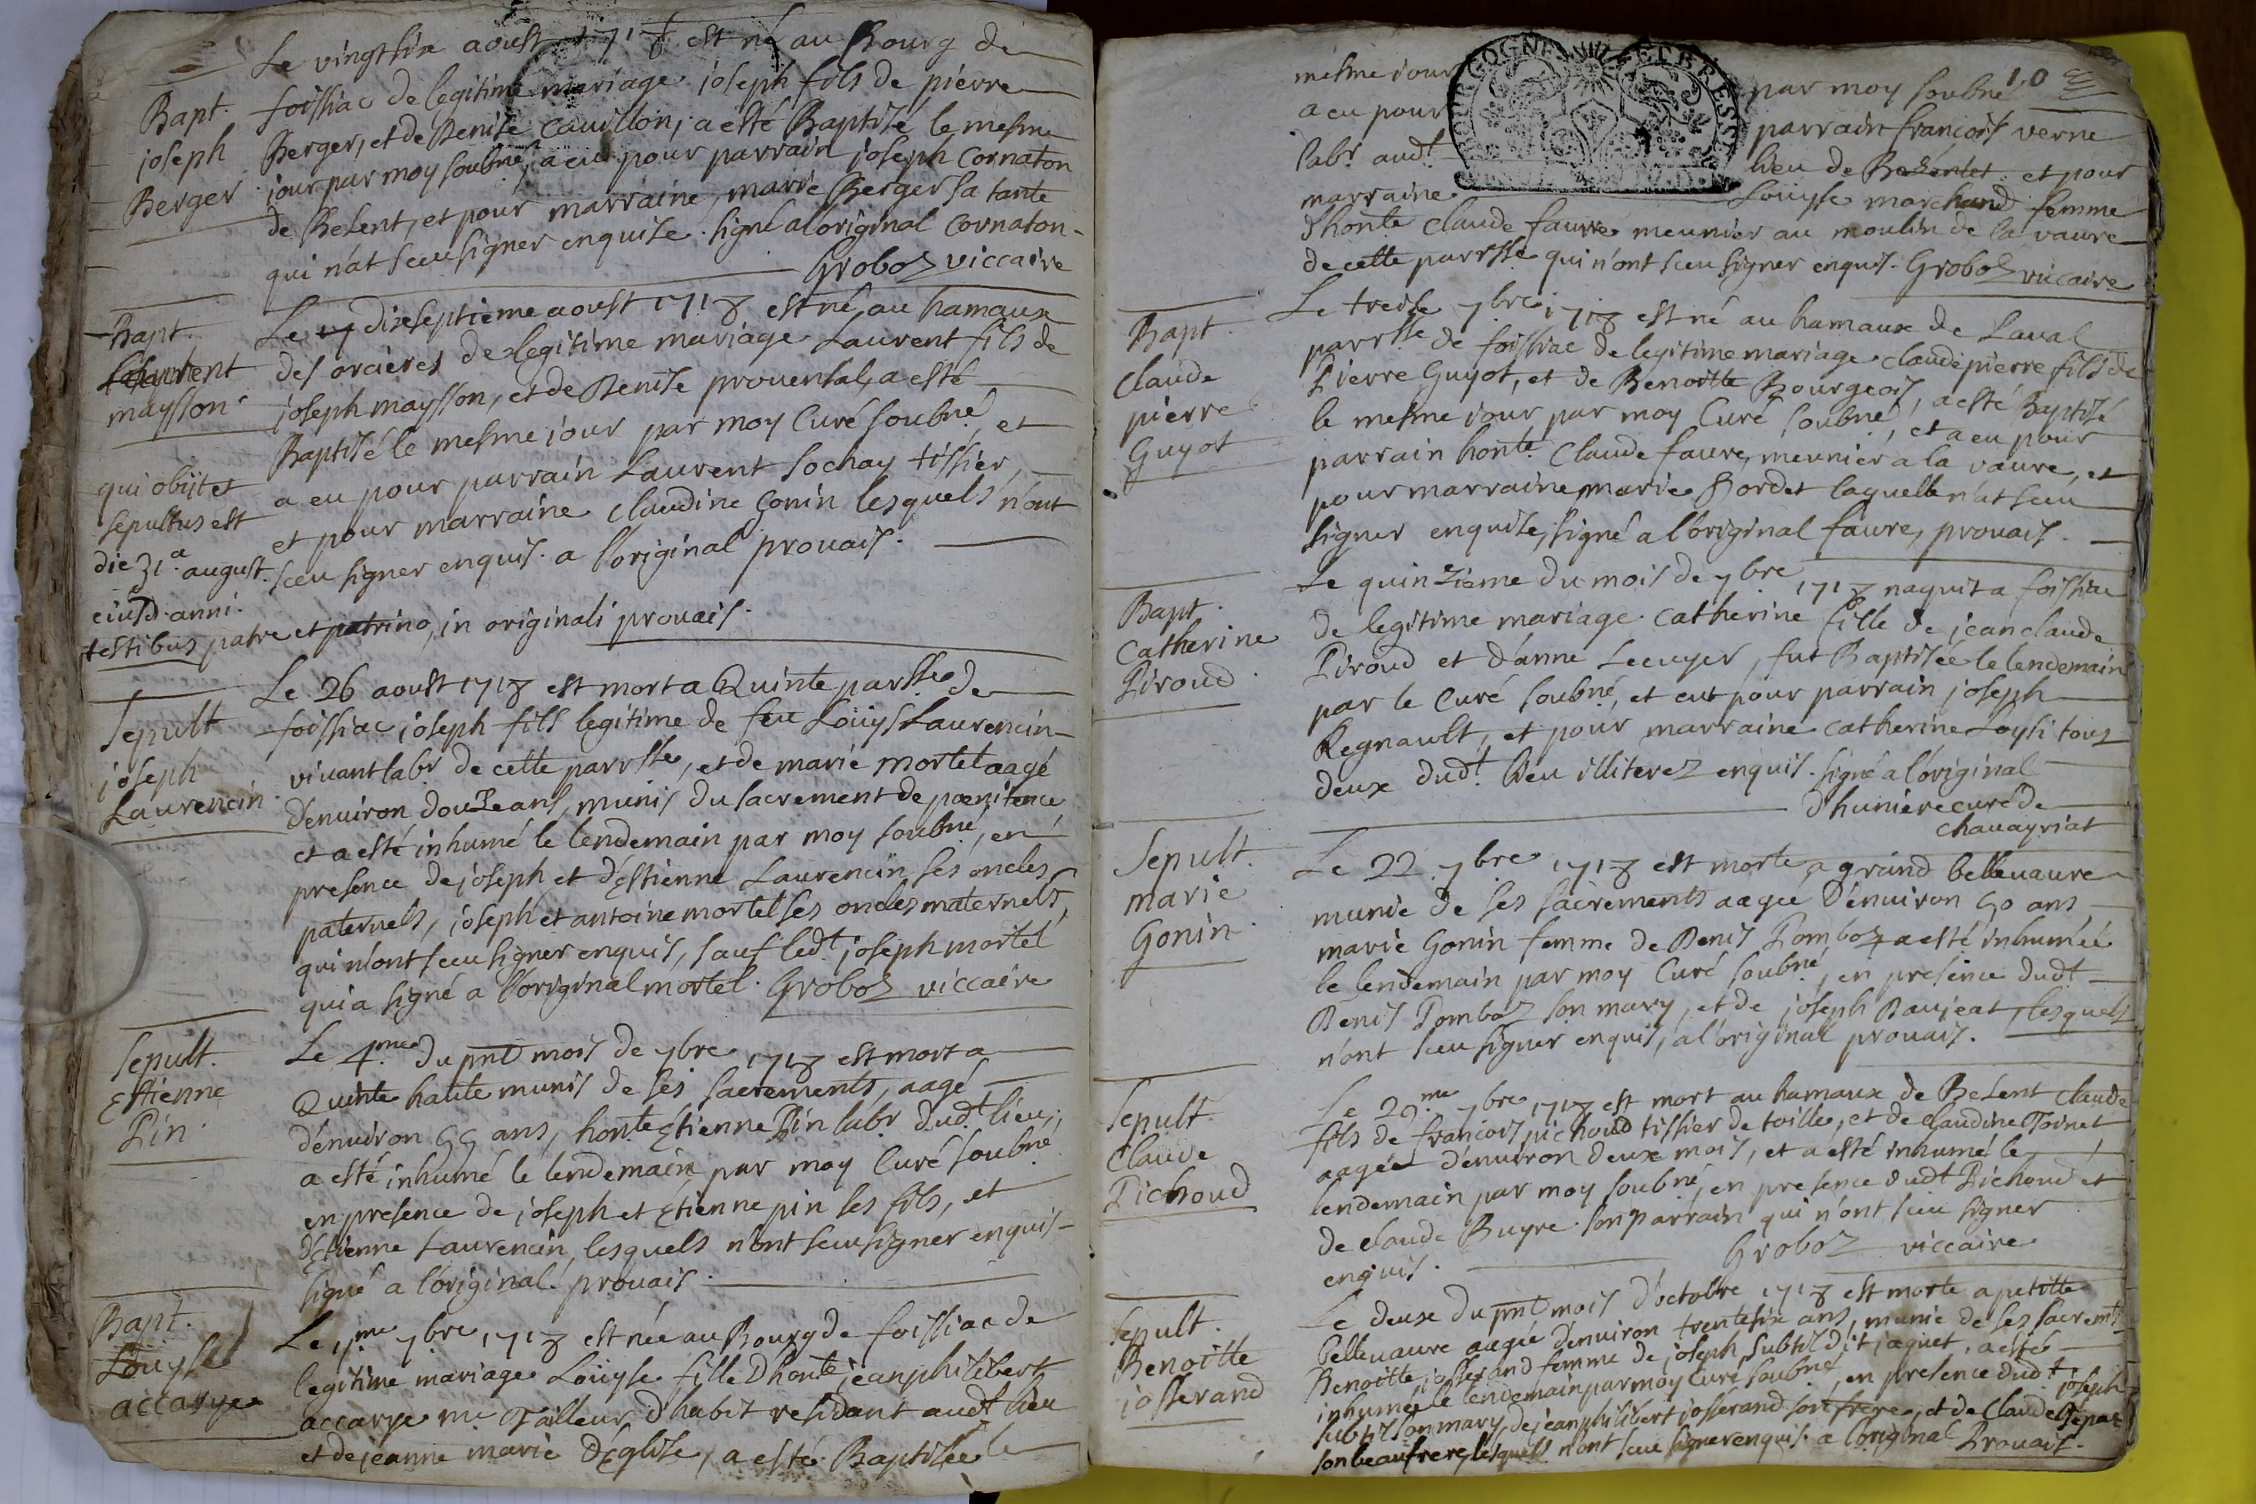 Le vingt six aoust 1718 est né au Bourg de
Bapt. joseph Berger
foissiac de legitime mariage joseph fils de pierre
Berger, et de Denise Cauillon, a esté Baptisé le mesme
jour par moy soubné, a eu pour parrain joseph Cornaton
de Besent, et pour marraine, marie Berger sa tante
qui n'at sceu signer enquise. signé a loriginal Cornaton.
Groboz viccaire
Bapt. Laurent maysson.
Le dixseptieme aoust 1718 est né au hamaux
des orcieres de legitime mariage Laurent fils de
joseph maysson, et de Denise prouensal, a esté
Baptisé le mesme jour par moy Curé soubné, et
a eu pour parrain Laurent sochay tissier,
et pour marraine Claudine Gonin lesquels n'ont
sceu signer enquis. a l'original prouais.
qui obiit et
sepultus est
die 31.a august.
eiusd. anni.
testibus patre et patrino, in originali prouais.
Sepult joseph Laurencin
Le 26 aoust 1718 est mort a Quinte parsse de
foissiac joseph fils legitime de feu Loüys Laurencin
viuant labr de cette parrsse, et de marie mortel aagé
d'enuiron douze ans, munis du sacrement de poenitence
et a esté inhumé le lendemain par moy soubné, en
presence de joseph et d'Estienne Laurencin ses oncles
paternels, joseph et antoine mortel ses oncles maternels,
qui n'ont sceu signer enquis, sauf ledt joseph mortel
qui a signé a l'original mortel. Groboz viccaire
Sepult. Estienne Pin.
Le 4.me du pnt mois de 7bre 1718 est mort a
Quinte haute munis de ses sacrements, aagé
d'enuiron 55 ans, honte Étienne Pin labr dudt lieu,
a esté inhumé le lendemain par moy Curé soubné
en presence de joseph et Étienne pin ses fils, et
d'Étienne Laurencin, lesquels n'ont sceu signer enquis
signé a l'original prouais.
Bapt. Louyse accarye
Le me 7bre 1718 est née au Bourg de foissiac de
legitime mariage Loüyse fille D'honte jeanphilibert
accarye me Tailleur d'habit residant audt lieu
et de jeanne marie D'Eglise, a esté Baptisée le
10
mesme jour par moy soubné
a eu pour parrain francois verne
labr audt lieu de et pour
marraine Loüyse marchand femme
d'honte Claude faure meunier au moulin de la vaure
de cette parrsse qui n'ont sceu signer enquis. Groboz viccaire
Bapt. Claude pierre Guyot
Le treise 7bre 1718 est né au hamaux de Laval
parrsse de foissiac de legitime mariage claude pierre fils de
Pierre Guyot, et de Benoitte Bourgeois, a esté Baptisé
le mesme jour par moy Curé soubné, et a eu pour
parrain honte Claude faure, meunier a la vaure, et
pour marraine marie Bordet laquelle n'at sceu
signer enquise, signé a l'original faure, prouais.
Bapt. Catherine Piroud.
Le quinzieme du mois de 7bre 1718 naquit a foissiac
de legitime mariage Catherine fille de jean claude
Piroud et d'anne Lecuyer, fut Baptisée le lendemain
par le Curé soubné, et eut pour parrain joseph
Regnault, et pour marraine Catherine Loysi tous
deux dudt lieu illiterez enquis. signé a l'original
d'huniere curé de
chauayriat
Sepult. marie Gonin.
Le 22 7bre 1718 est morte a grand belleuaure
munie de ses sacrements aagée d'enuiron 50 ans
marie Gonin femme de Denis Pomboz, a esté inhumée
le lendemain par moy Curé soubné, en presence dudt
Denis Pomboz son mary, et de joseph Baujeat, lesquels
n'ont sceu signer enquis, a l'original prouais.
Sepult. Claude Pichoud
Le 29.me 7bre 1718 est mort au hamaux de Besent Claude
fils de francois pichoud tissier de toille, et de Claudine Poinet
aagée d'enuiron deux mois, et a esté inhumé le
lendemain par moy soubné, en presence dudt Pichoud et
de Claude Buyre son parrain qui n'ont sceu signer
enquis. Groboz viccaire
Sepult. Benoitte josserand
Le deux du pnt mois d'octobre 1718 est morte a petitte
belleuaure aagée d'enuiron trente six ans, munie de ses sacremts
Benoitte josserand femme de joseph subtil dit jaquet, a esté
inhumée le lendemain par moy Curé soubné, en presence dudt joseph
subtil son mary, de jeanphilibert josserand son frere, et de Claude
son beaufrere, lesquels n'ont sceu signer enquis a l'original Prouais.